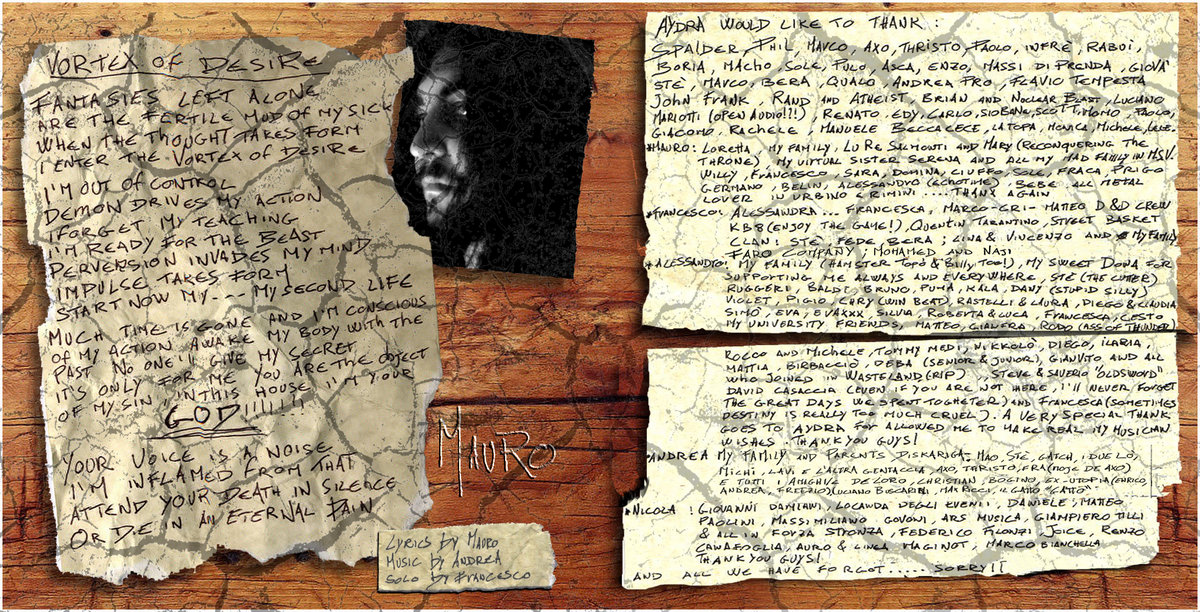 VORTEX OF DESIRE
FANTASIES LEFT ALONE
ARE THE FERTILE MUD OF MY SICK
WHEN THE THOUGHT TAKES FORM
I ENTER THE VORTEX OF DESIRE
I'M OUT OF CONTROL
DEMON DRIVES MY ACTION
FORGET MY TEACHING
I'M READY FOR THE BEAST
PERVERSION INVADES MY MIND
IMPULSE TAKES FORM
START NOW MY... MY SECOND LIFE
MUCH TIME IS GONE AND I'M CONSCIOUS
OF MY ACTION AWAKE MY BODY WITH THE
PAST NO ONE'LL GIVE MY SECRET
IT'S ONLY FOR ME YOU ARE THE OBJECT
OF MY SIN IN THIS HOUSE I'M YOUR
GOD!!!!!!!
YOUR VOICE IS A NOISE
I'M INFLAMED FROM THAT
ATTEND YOUR DEATH IN SILENCE
OR DIE IN AN ETERNAL PAIN
MAURO
LYRICS BY MAURO
MUSIC BY ANDREA
SOLO BY FRANCESCO
AYDRA WOULD LIKE TO THANK:
SPALDER, PHIL, MARCO, AXO, THRISTO, PAOLO, INFRE, RABUI,
BORIA, MACHO, SOLE, PULO, ASCA, ENZO, MASSI DI PRENDA, GIOVA'
STE, MARCO BERA, QUALO, ANDREA PRO, FLAVIO TEMPESTA
JOHN FRANK, RAND AND ATHEIST, BRIAN AND NUCLEAR BLAST, LUCIANO
MARIOTTI (OPEN AUDIO!!!), RENATO, EDY, CARLO, SIOBANE, SCOTT, MOMO, PAOLO,
GIACOMO, RACHELE, MANUELE BECCACECE, LA TOPA, MONICA, MICHELE, LELE.
*MAURO: LORETTA, MY FAMILY, LU RE SALMONTI AND MARY (RECONQUERING THE
THRONE), MY VIRTUAL SISTER SERENA AND ALL MY MAD FAMILY IN M.S.V.
WILLY, FRANCESCO, SARA, DOMINA, CIUFFO, SOLE, FRACA, PRIGO
GERMANO, BELIN, ALESSANDRO (ECHOTIME), BEBE ALL METAL
LOVER IN URBINO & RIMINI.... THANX AGAIN
*FRANCESCO: ALESSANDRA... FRANCESCA, MARCO-CRI-MATTEO D&D CREW
KB8 (ENJOY THE GAME!), QUENTIN TARANTINO, STREET BASKET
CLAN: STE, FEDE, BERA; LINA & VINCENZO AND MY FAMILY
FARO COMPANY, MOHAMED AND NAJI
*ALESSANDRO: MY FAMILY (HAMSTER TOO & BILLY TOO!), MY SWEET DONA FOR
SUPPORTING ME ALWAYS AND EVERYWHERE, STE (THE CUTTER)
RUGGERI, BALDE, BRUNO, PUMA, KALA, DANY (STUPID SILLY)
VIOLET, PIGIO, CHRY (WIN BEAT), RASTELLI & LAURA, DIEGO & CLAUDIA
SIMO, EVA, EVAXXX, SILVIA, ROBERTA & LUCA, FRANCESCA, CESTO
MY UNIVERSITY, FRIENDS, MATTEO, GIALLERA, RODO (ASS OF THUNDER)
ROCCO AND MICHELE, TOMMY MEDI, NIKKOLO, DIEGO, ILARIA,
MATTIA, BIRBACCIO, DEBA (SENIOR & JUNIOR), GIANVITO AND ALL
WHO JOINED IN WASTELAND (RIP), STEVE & SAVERIO "OLDSWORD"
DAVID CASACCIA (EVEN IF YOU ARE NOT HERE, I'LL NEVER FORGET
THE GREAT DAYS WE SPENT TOGHETER) AND FRANCESCA (SOMETIMES
DESTINY IS REALLY TOO MUCH CRUEL). A VERY SPECIAL THANK
GOES TO AYDRA FOR ALLOWED ME TO MAKE REAL MY MUSICIAN
WISHES. THANK YOU GUYS!
*ANDREA MY FAMILY AND PARENTS DISKARIGA: MAO, STE, CATCH, I DUE LO,
MICHI, LAVI E L'ALTRA GENTACCIA, AXO, THRISTO, FRA (MOJE DE AXO)
E TUTTI I AMIGHI DE LORO, CHRISTIAN, BOGINO, EX-UTOPIA (ENRICO,
ANDREA, FREDDIO) (LUCIANO BECCARINI, MAX RICCI, IL GATTO "GATTO"
*NICOLA: GIOVANNI DAMIANI, LOCANDA DEGLI EVENTI, DANIELE, MATTEO
PAOLINI, MASSIMILIANO GOVONI, ARS MUSICA, GIAMPIERO TILLI
& ALL IN FORZA STRONZA, FEDERICO FILONZI, JOICE, RENZO
CANAFOGLIA, AURO & LINEA MAGINOT, MARCO BIANCHELLA
THANK YOU GUYS!
AND ALL WE HAVE FORGOT..... SORRY!!